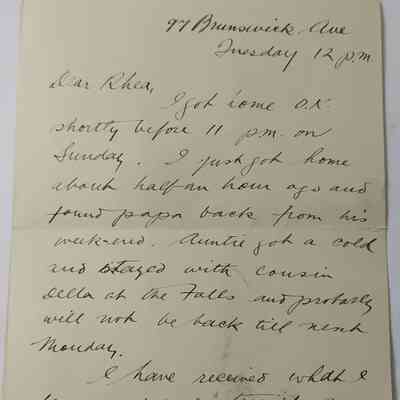 97 Brunswick Ave
Tuesday 12 p.m.
Dear Rhea,
I got home O.K.
shortly before 11 p.m. on
Sunday. I just got home
about half an hour ago and
found papa back from his
week-end. Auntie got a cold
and stayed with cousin
Della at the Falls and probably
will not be back till next
Monday.
I have received what I